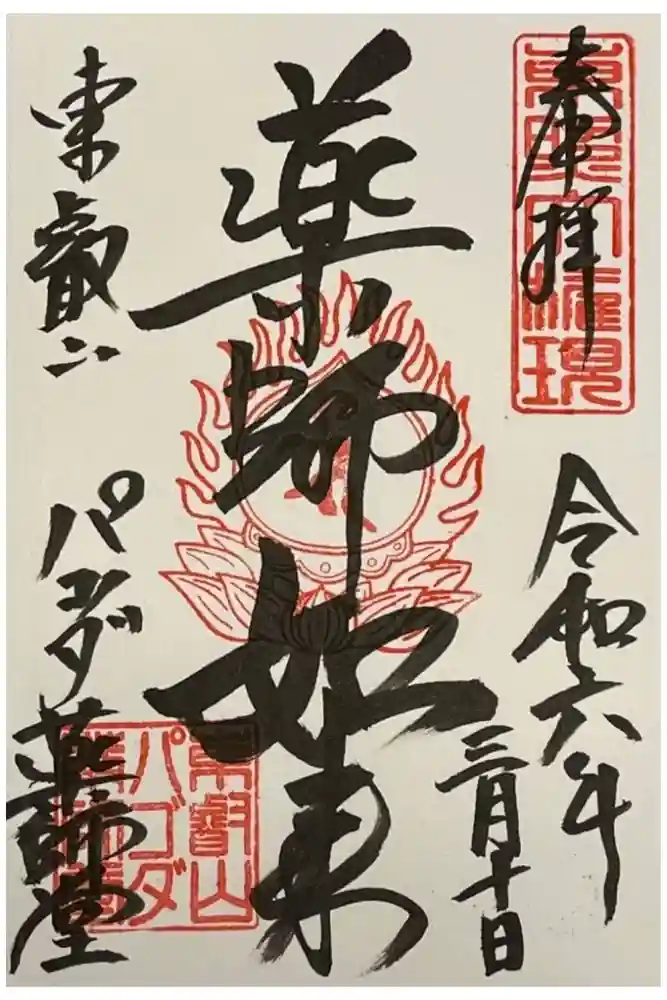 奉拝
東照大権現
令和六年
三月十日
薬師如来
東叡山
パゴダ
薬師堂
東叡山
パゴダ
薬師堂